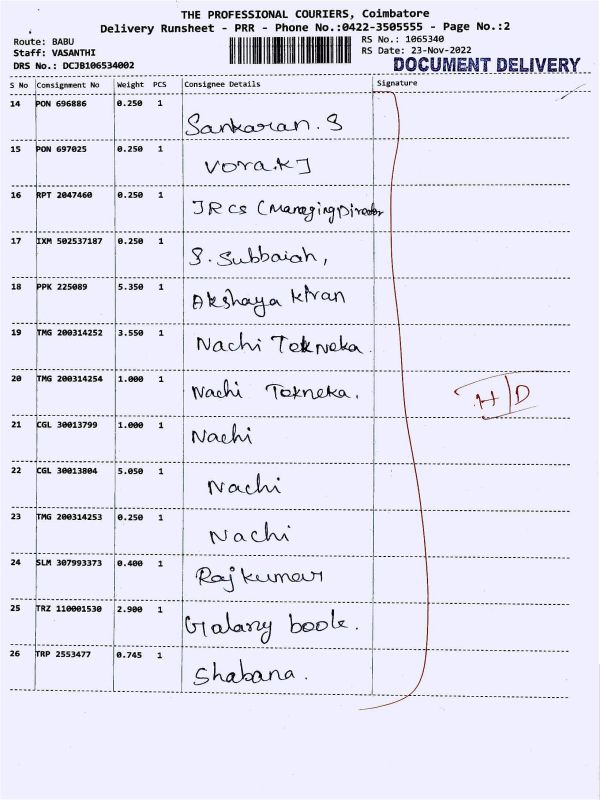 THE PROFESSIONAL COURIERS, Coimbatore
Delivery Runsheet - PRR - Phone No.:0422-3505555 - Page No.:2
Route: BABU
RS No.: 1065340
Staff: VASANTHI
RS Date: 23-Nov-2022
DRS No.: DCJB106534002
DOCUMENT DELIVERY
S No Consignment No Weight PCS Consignee Details Signature
14 PON 696886 0.250 1 Sankaran. S
15 PON 697025 0.250 1 Vora.K J
16 RPT 2047460 0.250 1 JRCS (Managing Director
17 IXM 502537187 0.250 1 S. Subbaiah,
18 PPK 225089 5.350 1 Akshaya Kiran
19 TMG 200314252 3.550 1 Nachi Tokneka.
20 TMG 200314254 1.000 1 Nachi Tokneka.
H/D
21 CGL 30013799 1.000 1 Nachi
22 CGL 30013804 5.050 1 Nachi
23 TMG 200314253 0.250 1 Nachi
24 SLM 307993373 0.400 1 Rajkumar
25 TRZ 110001530 2.900 1 Galaxy book.
26 TRP 2553477 0.745 1 Shabana.